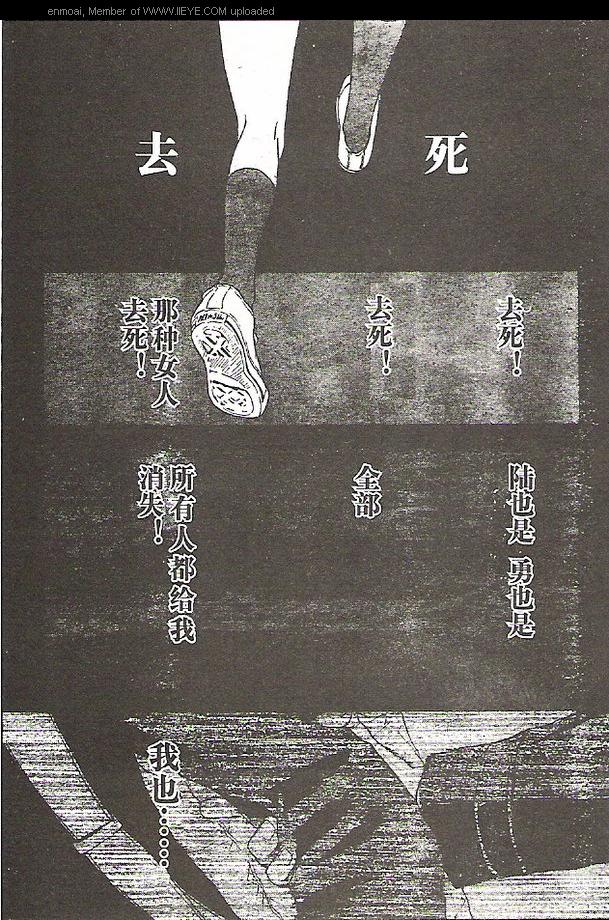 enmoai, Member of WWW.IIEYE.COM uploaded
去
死
去死！
去死！
那种女人
去死！
陆也是 勇也是
全部
所有人都给我
消失！
我也……